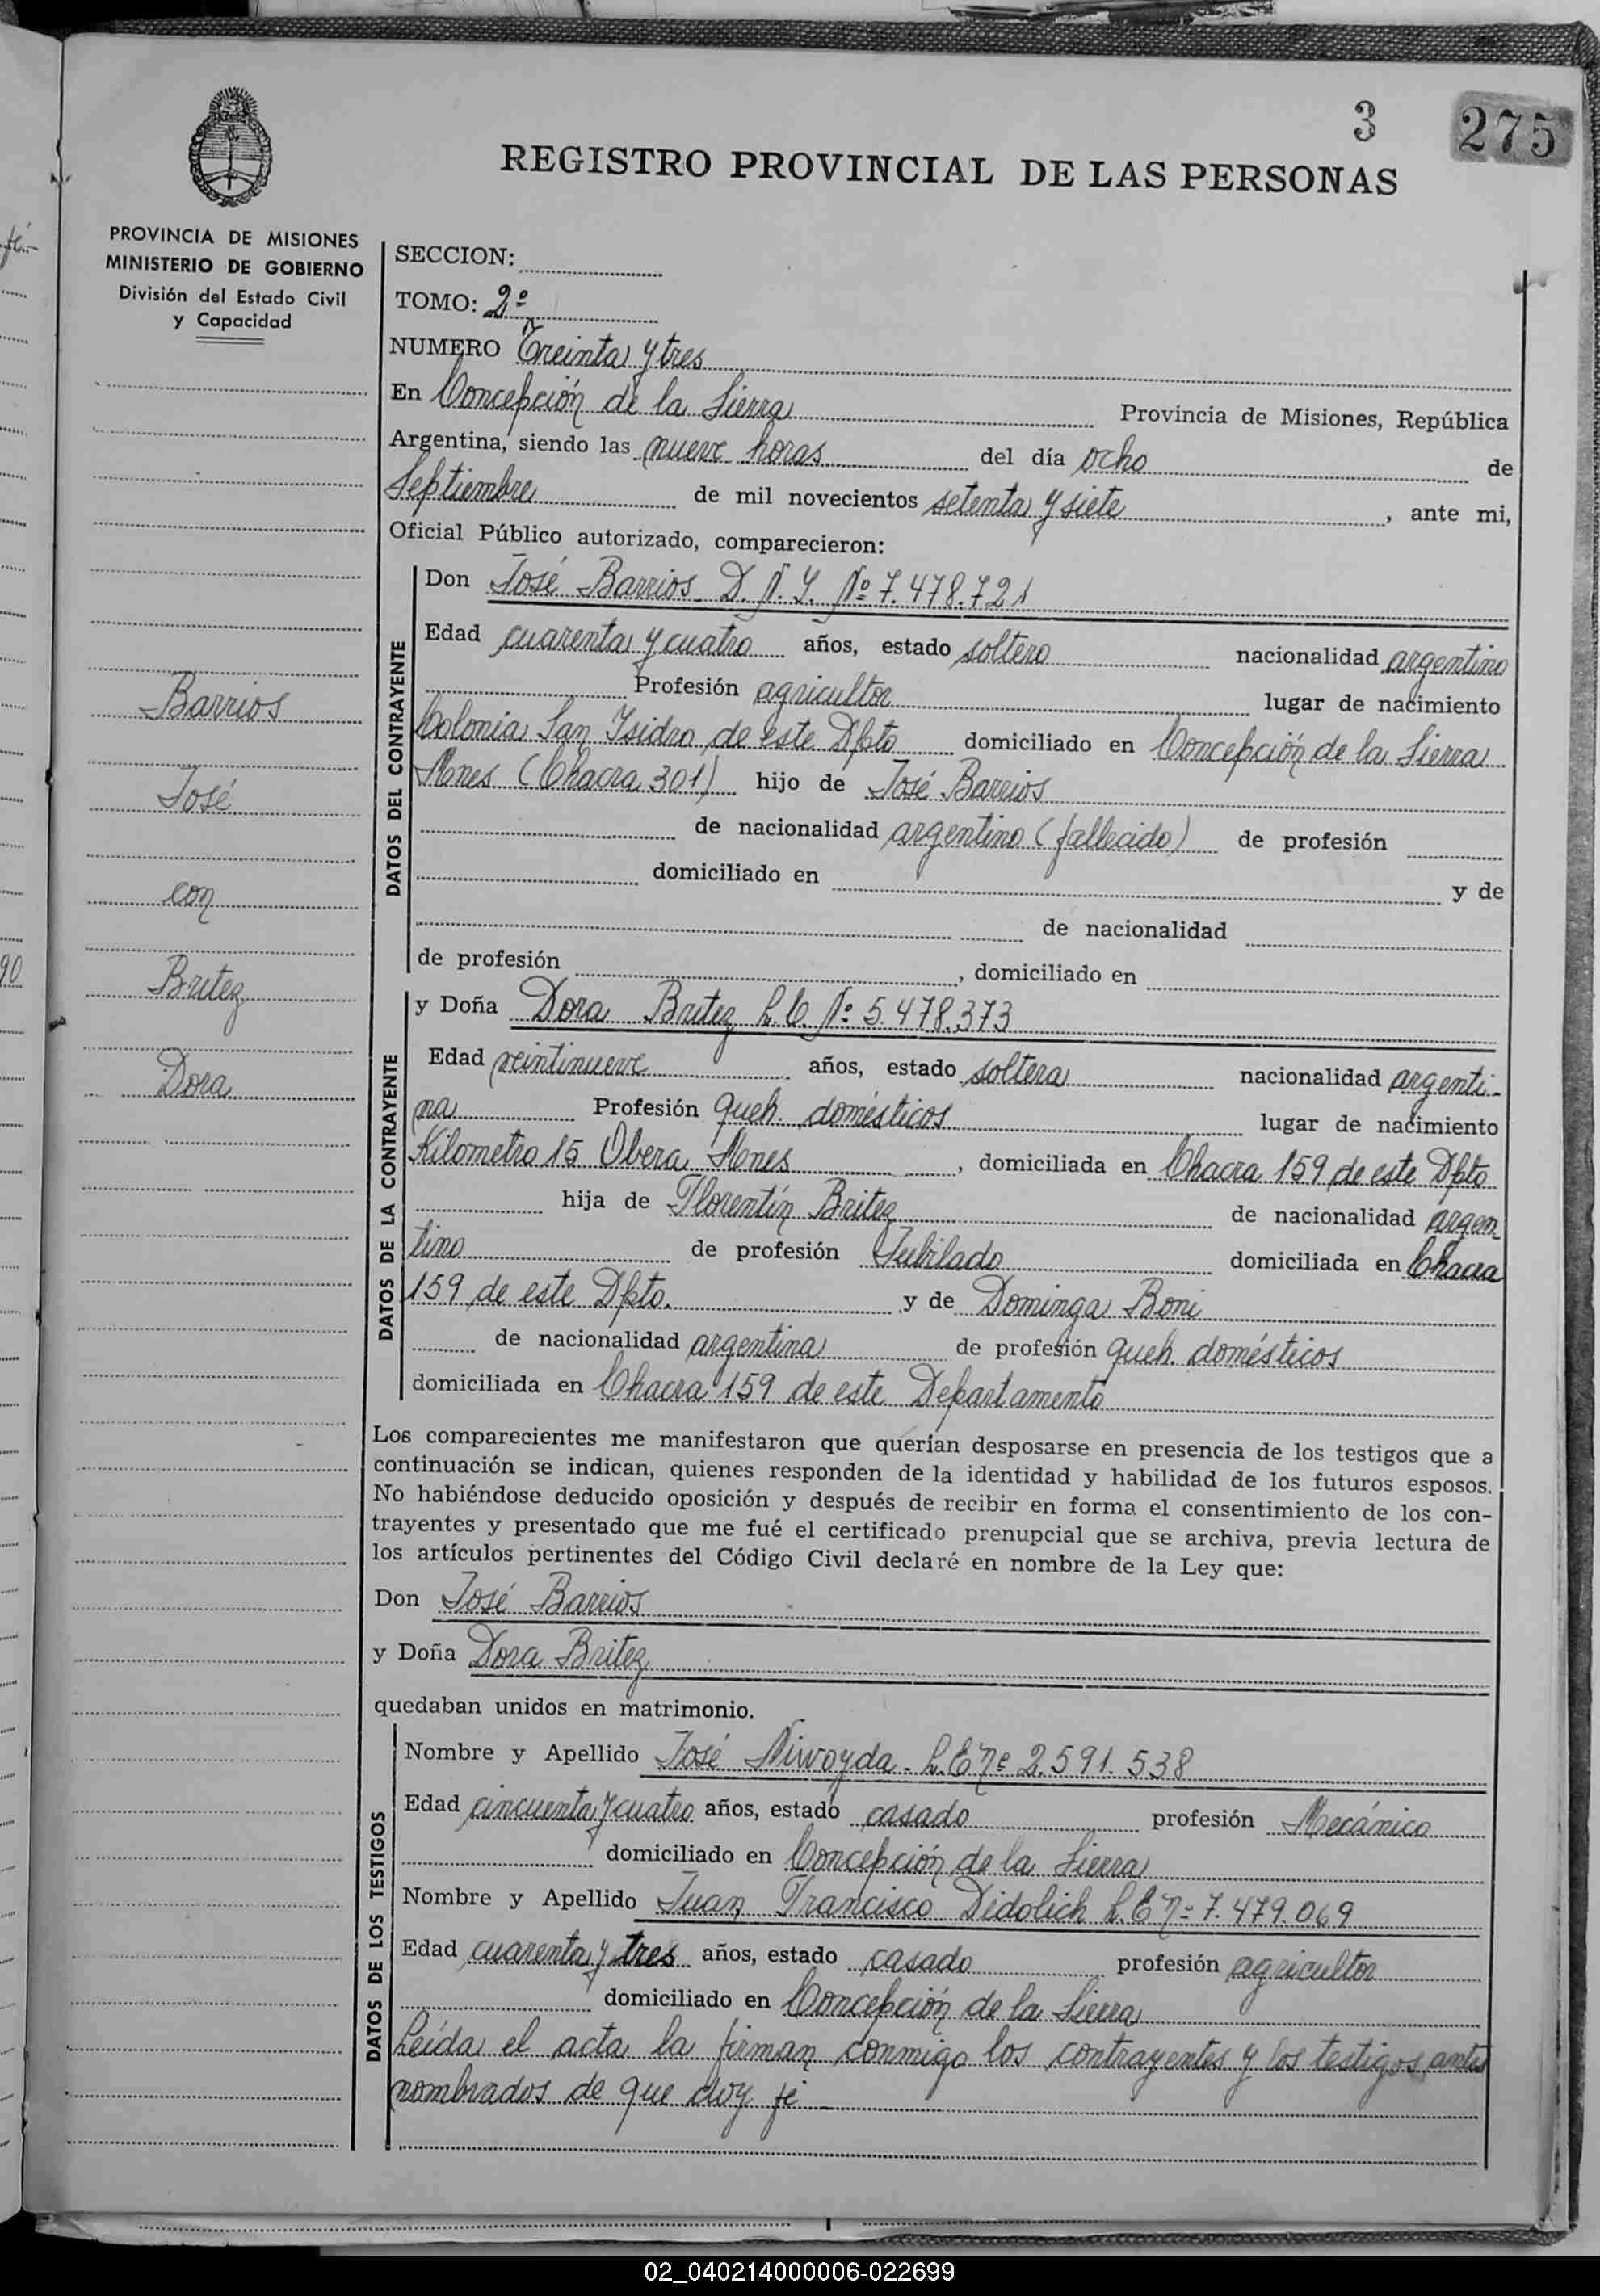 3 275
REGISTRO PROVINCIAL DE LAS PERSONAS
PROVINCIA DE MISIONES
MINISTERIO DE GOBIERNO
División del Estado Civil
y Capacidad
Barrios
José
con
Britez
Dora
fé.-
90
SECCION:
TOMO: 2º
NUMERO Treinta y tres
En Concepción de la Sierra Provincia de Misiones, República
Argentina, siendo las nueve horas del día ocho de
Septiembre de mil novecientos setenta y siete, ante mi,
Oficial Público autorizado, comparecieron:
DATOS DEL CONTRAYENTE
Don José Barrios D. N. Y. Nº 7.478.721
Edad cuarenta y cuatro años, estado soltero nacionalidad argentino
Profesión agricultor lugar de nacimiento
Colonia San Isidro de este Dpto domiciliado en Concepción de la Sierra
Mnes (Chacra 301) hijo de José Barrios
de nacionalidad argentino (fallecido) de profesión
domiciliado en y de
de nacionalidad
de profesión , domiciliado en
DATOS DE LA CONTRAYENTE
y Doña Dora Britez L.C. Nº 5.478.373
Edad veintinueve años, estado soltera nacionalidad argenti-
na Profesión queh. domésticos lugar de nacimiento
Kilometro 15 Obera Mnes, domiciliada en Chacra 159 de este Dpto
hija de Florentín Britez de nacionalidad argen
tino de profesión Jubilado domiciliada en Chacra
159 de este Dpto. y de Dominga Boni
de nacionalidad argentina de profesión queh. domésticos
domiciliada en Chacra 159 de este Departamento
Los comparecientes me manifestaron que querían desposarse en presencia de los testigos que a
continuación se indican, quienes responden de la identidad y habilidad de los futuros esposos.
No habiéndose deducido oposición y después de recibir en forma el consentimiento de los con-
trayentes y presentado que me fué el certificado prenupcial que se archiva, previa lectura de
los artículos pertinentes del Código Civil declaré en nombre de la Ley que:
Don José Barrios
y Doña Dora Britez
quedaban unidos en matrimonio.
DATOS DE LOS TESTIGOS
Nombre y Apellido José Niwoyda - L.E Nº 2.591.538
Edad cincuenta y cuatro años, estado casado profesión Mecánico
domiciliado en Concepción de la Sierra
Nombre y Apellido Juan Francisco Didolich L.E Nº 7.479.069
Edad cuarenta y tres años, estado casado profesión agricultor
domiciliado en Concepción de la Sierra
Leída el acta la firman conmigo los contrayentes y los testigos antes
nombrados de que doy fé
02_040214000006-022699